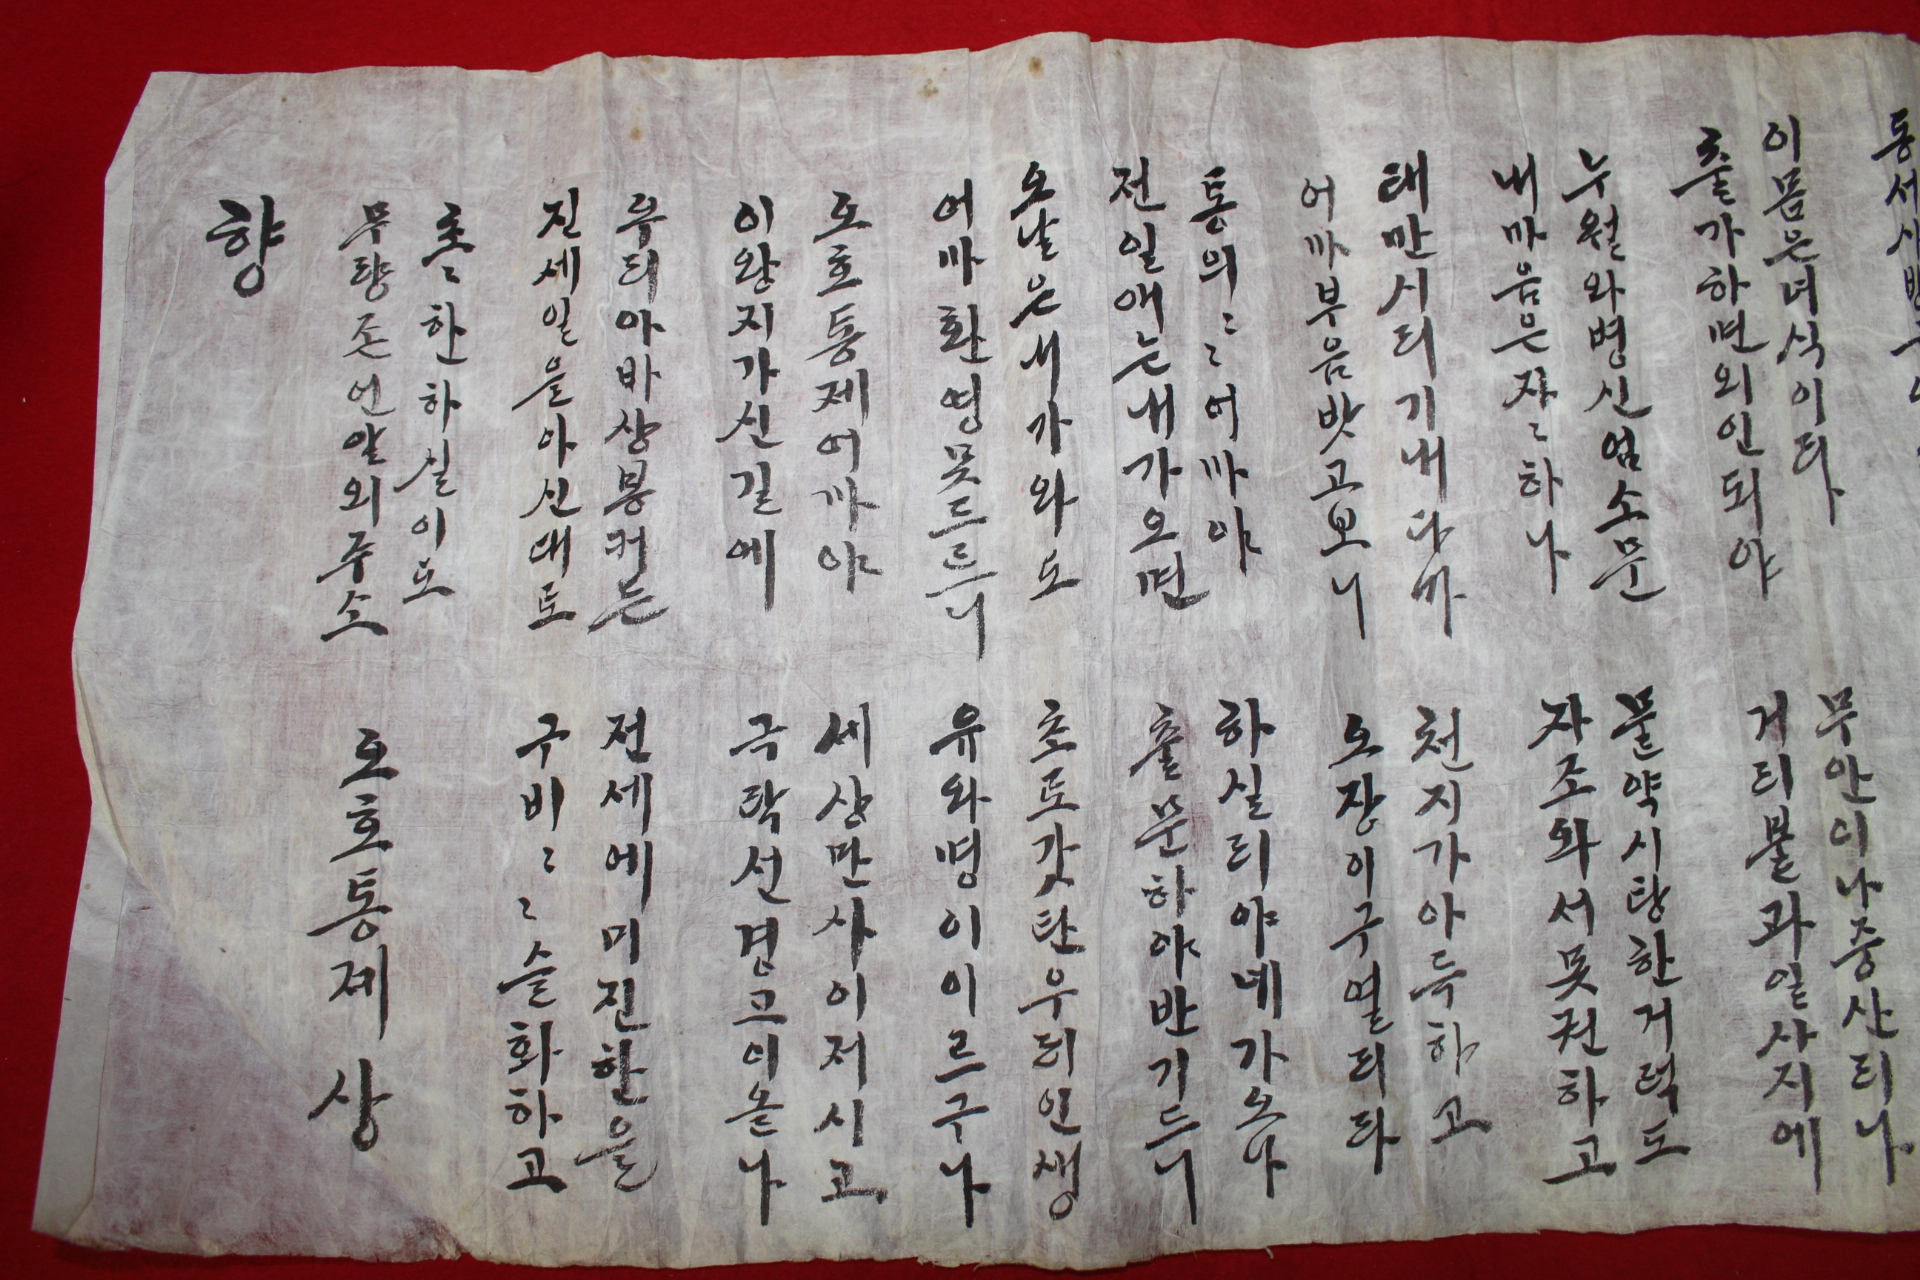 동서사방
이몸은녀식이라
출가하면외인되야
무안이나중산리나
거리불과일사지에
누월와병신엄소문
내마음은자〻하나
물약시탕한거럭도
자조와서못권하고
태만시리기내다가
어마부음밧고보니
천지가아득하고
오장이구열리라
통의〻〻어마야
전일애는내가오면
하실리야네가오나
출문하야반기드니
오날은내가와도
어마환영못드르니
초로갓탄우리인생
유와명이이르구나
오호통제어마야
이왕지가신길에
세상만사이저시고
극락선경그이올나
우리아바상봉커든
진세일을아신대로
전세에미진한을
구비〻〻슬화하고
흔〻한하실이도
무량존언알외주소
오호통제 상
향